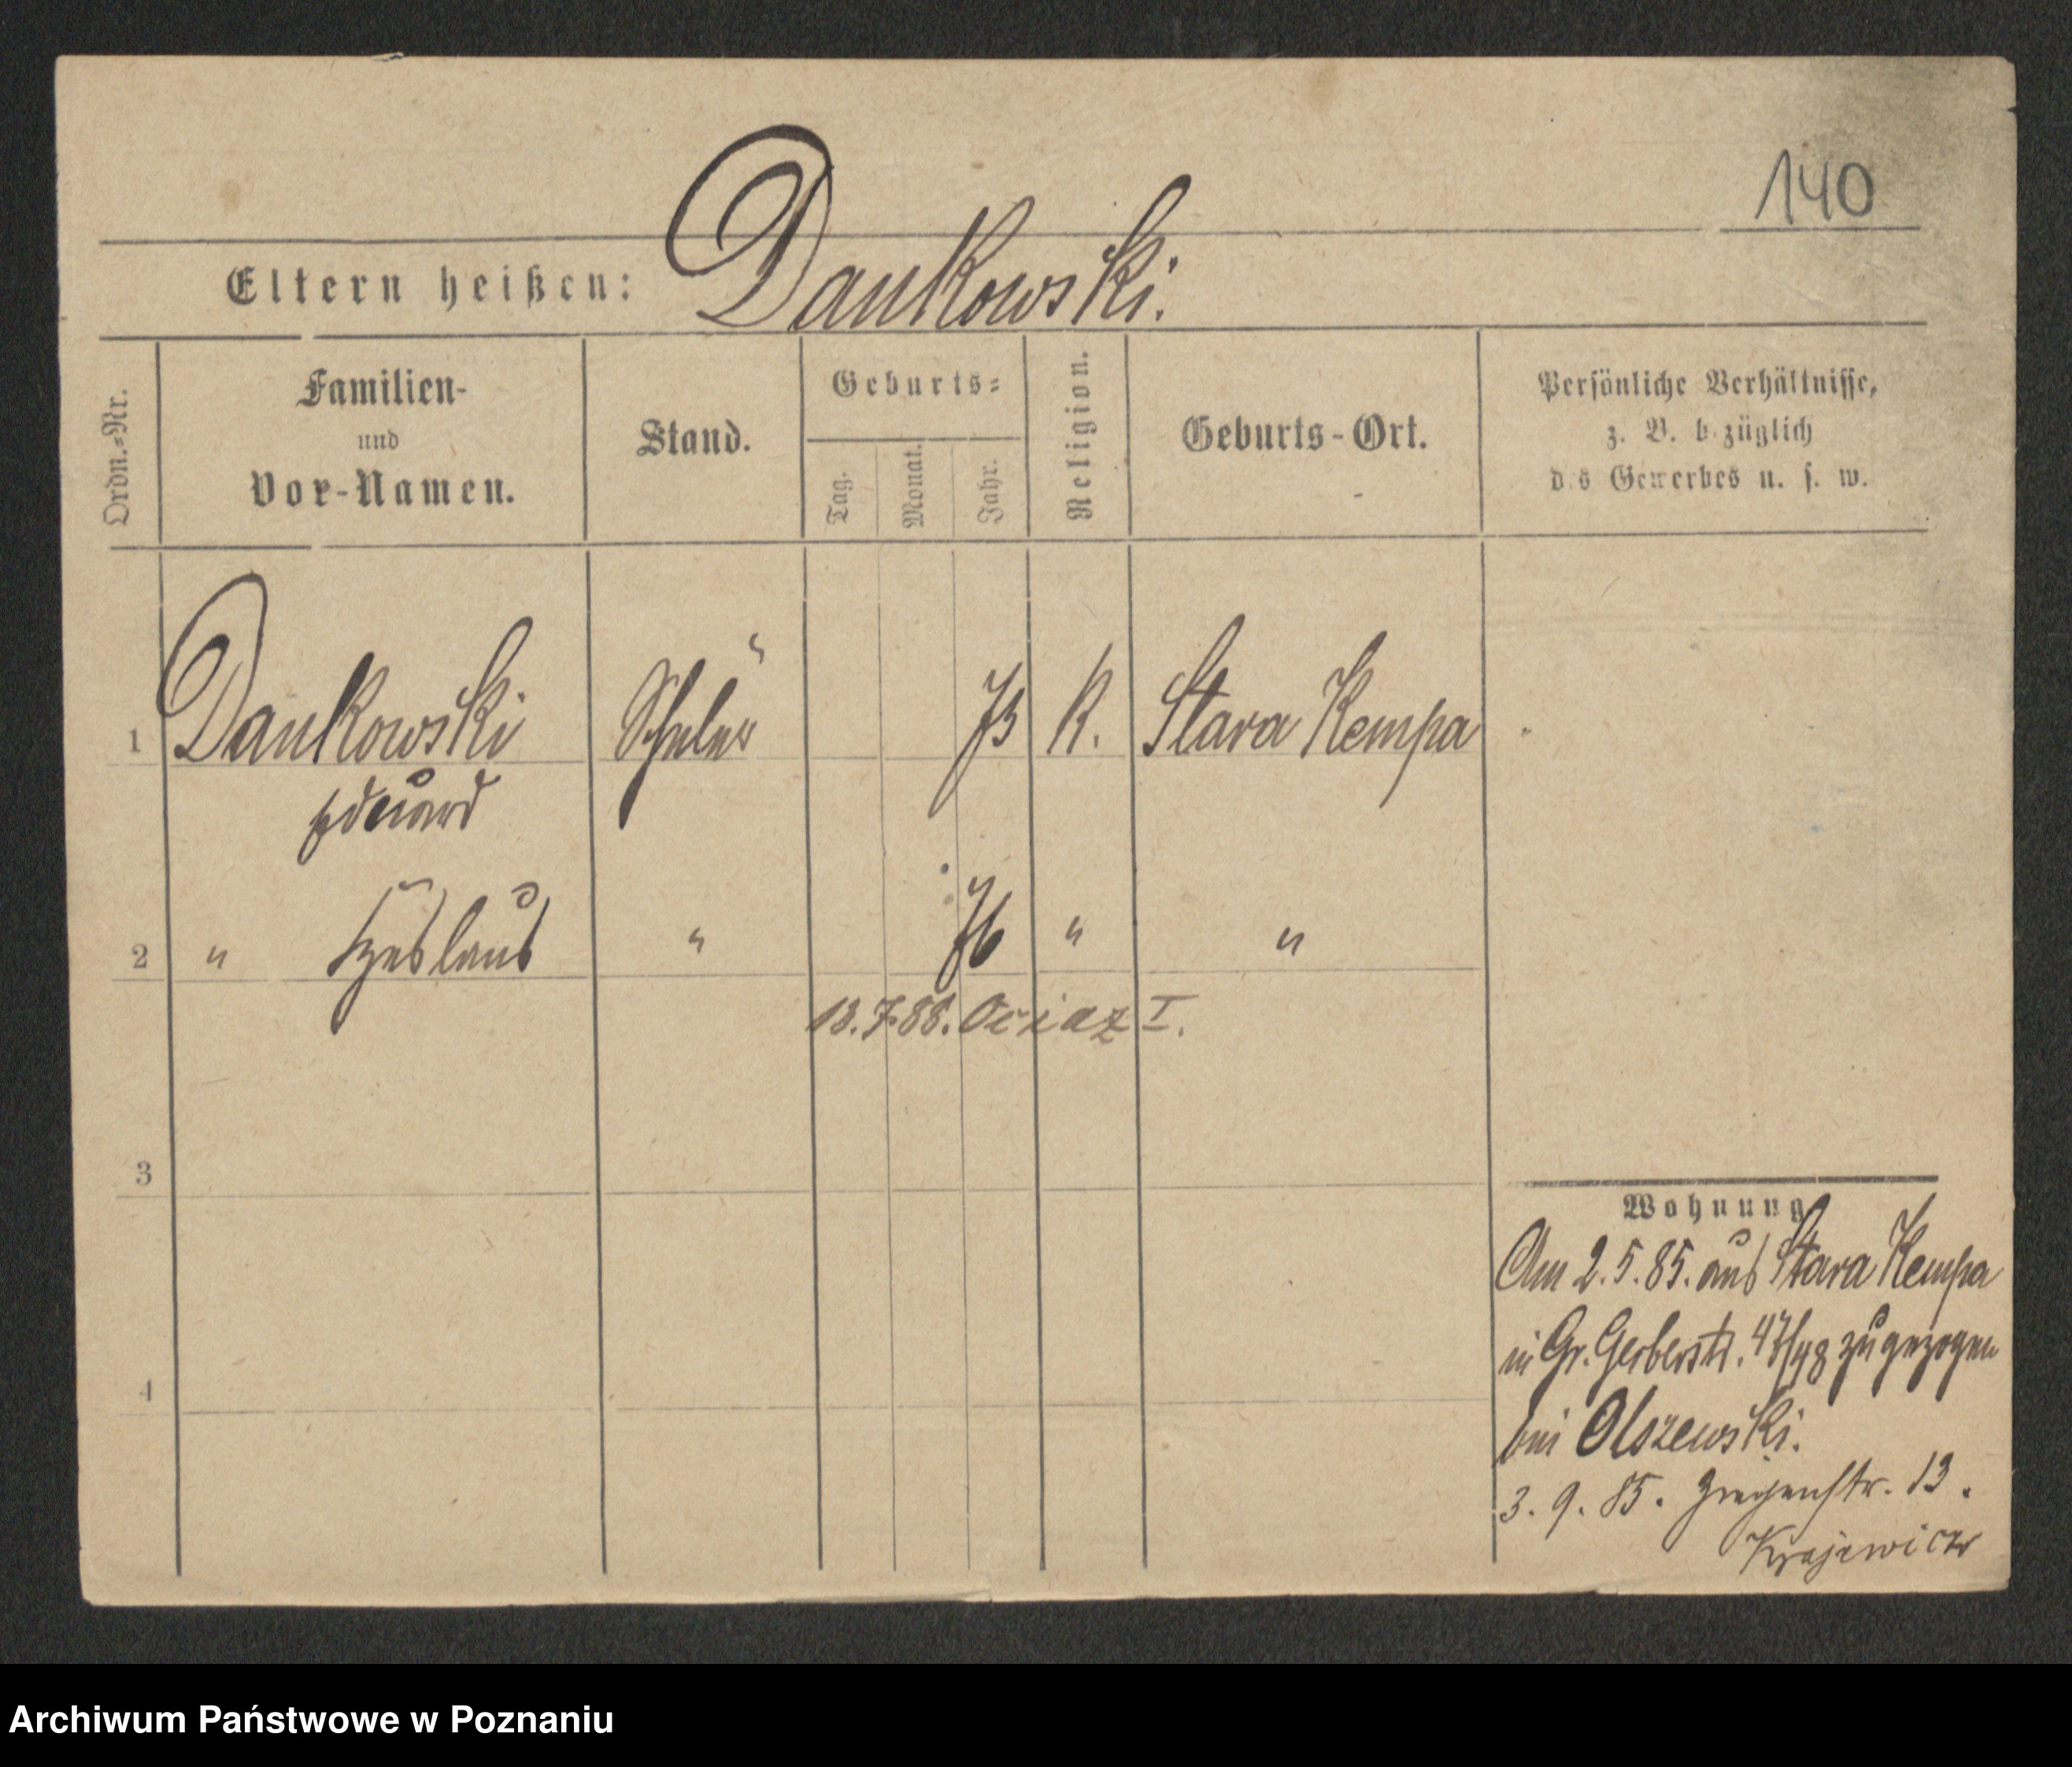 140
Eltern heißen: Dankowski.
Ordn.-Nr.
Familien-
und
Vor-Namen.
Stand.
Geburts-
Tag.
Monat.
Jahr.
Religion.
Geburts-Ort.
Persönliche Verhältnisse,
z. B. bezüglich
des Gewerbes u. s. w.
1 Dankowski Schüler 73 K. Stara Kempa
Eduard
2 " Czeslaus " 76 " "
18.7.88. Ociaz I.
3
4
Wohnung
Am 2.5.85. aus Stara Kempa
in Gr. Gerberstr. 47/48 zugezogen
bei Olszewski.
3. 9. 85. Ziegenstr. 13.
Krajewicz
Archiwum Państwowe w Poznaniu